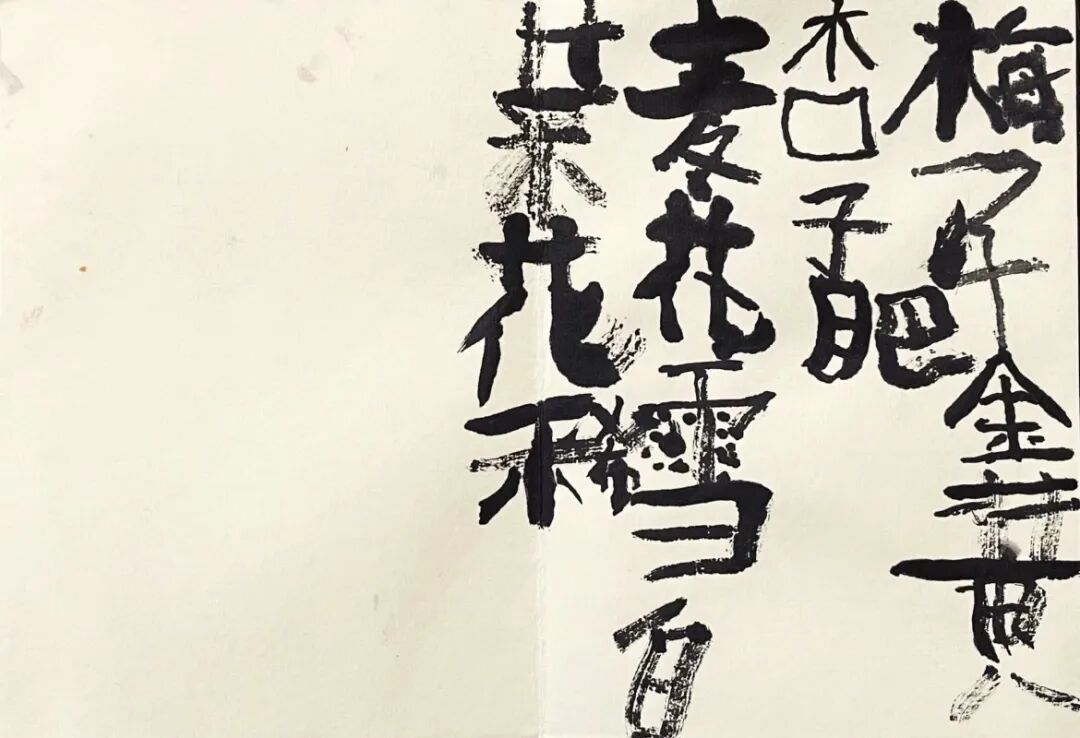 梅子金黄
杏子肥
麦花雪白
菜花稀